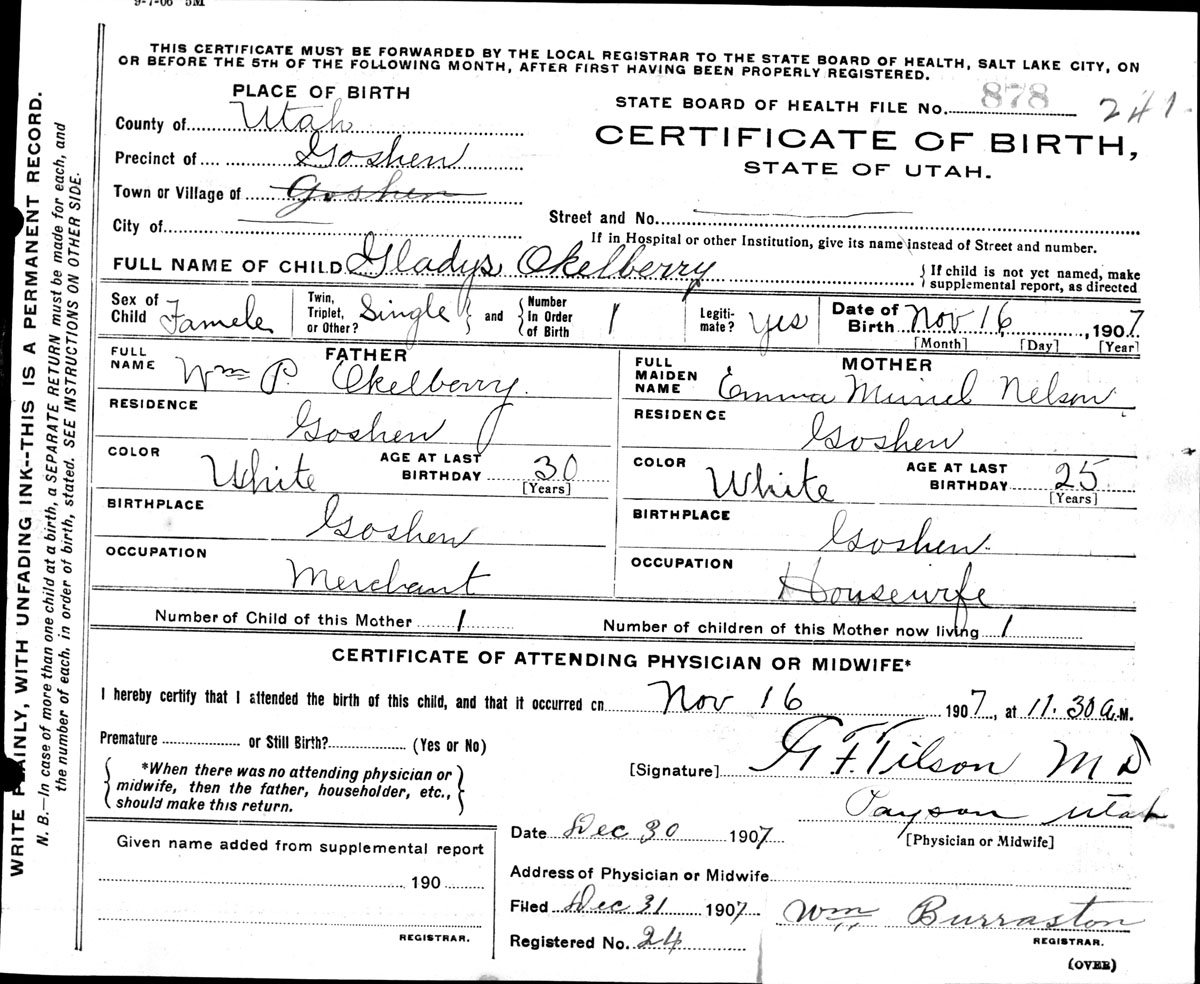 9-7-06 5M
THIS CERTIFICATE MUST BE FORWARDED BY THE LOCAL REGISTRAR TO THE STATE BOARD OF HEALTH, SALT LAKE CITY, ON
OR BEFORE THE 5TH OF THE FOLLOWING MONTH, AFTER FIRST HAVING BEEN PROPERLY REGISTERED.
WRITE PLAINLY, WITH UNFADING INK--THIS IS A PERMANENT RECORD.
N. B.—In case of more than one child at a birth, a SEPARATE RETURN must be made for each, and
the number of each, in order of birth, stated. SEE INSTRUCTIONS ON OTHER SIDE.
PLACE OF BIRTH
County of Utah
Precinct of Goshen
Town or Village of Goshen
City of
STATE BOARD OF HEALTH FILE No. 878 241
CERTIFICATE OF BIRTH,
STATE OF UTAH.
Street and No.
If in Hospital or other Institution, give its name instead of Street and number.
FULL NAME OF CHILD Gladys Okelberry { If child is not yet named, make
supplemental report, as directed
Sex of Child Famele
Twin, Triplet, or Other? Single } and { Number In Order of Birth 1
Legiti-mate? Yes
Date of Birth Nov 16, 1907
[Month] [Day] [Year]
FATHER
FULL NAME Wm P. Okelberry.
RESIDENCE
Goshen
COLOR White AGE AT LAST BIRTHDAY 30
[Years]
BIRTHPLACE
Goshen
OCCUPATION
Merchant
MOTHER
FULL MAIDEN NAME Emma Muriel Nelson
RESIDENCE
Goshen
COLOR White AGE AT LAST BIRTHDAY 25
[Years]
BIRTHPLACE
Goshen.
OCCUPATION
Housewife
Number of Child of this Mother 1 Number of children of this Mother now living 1
CERTIFICATE OF ATTENDING PHYSICIAN OR MIDWIFE*
I hereby certify that I attended the birth of this child, and that it occurred on Nov 16 1907, at 11.30 A.M.
Premature or Still Birth? (Yes or No)
{ *When there was no attending physician or
midwife, then the father, householder, etc.,
should make this return. }
[Signature] G F. Tilson M D
Payson Utah
[Physician or Midwife]
Date Dec 30 1907
Address of Physician or Midwife
Filed Dec 31 1907 Wm Burraston
REGISTRAR.
Registered No. 24
(OVER)
Given name added from supplemental report
190
REGISTRAR.